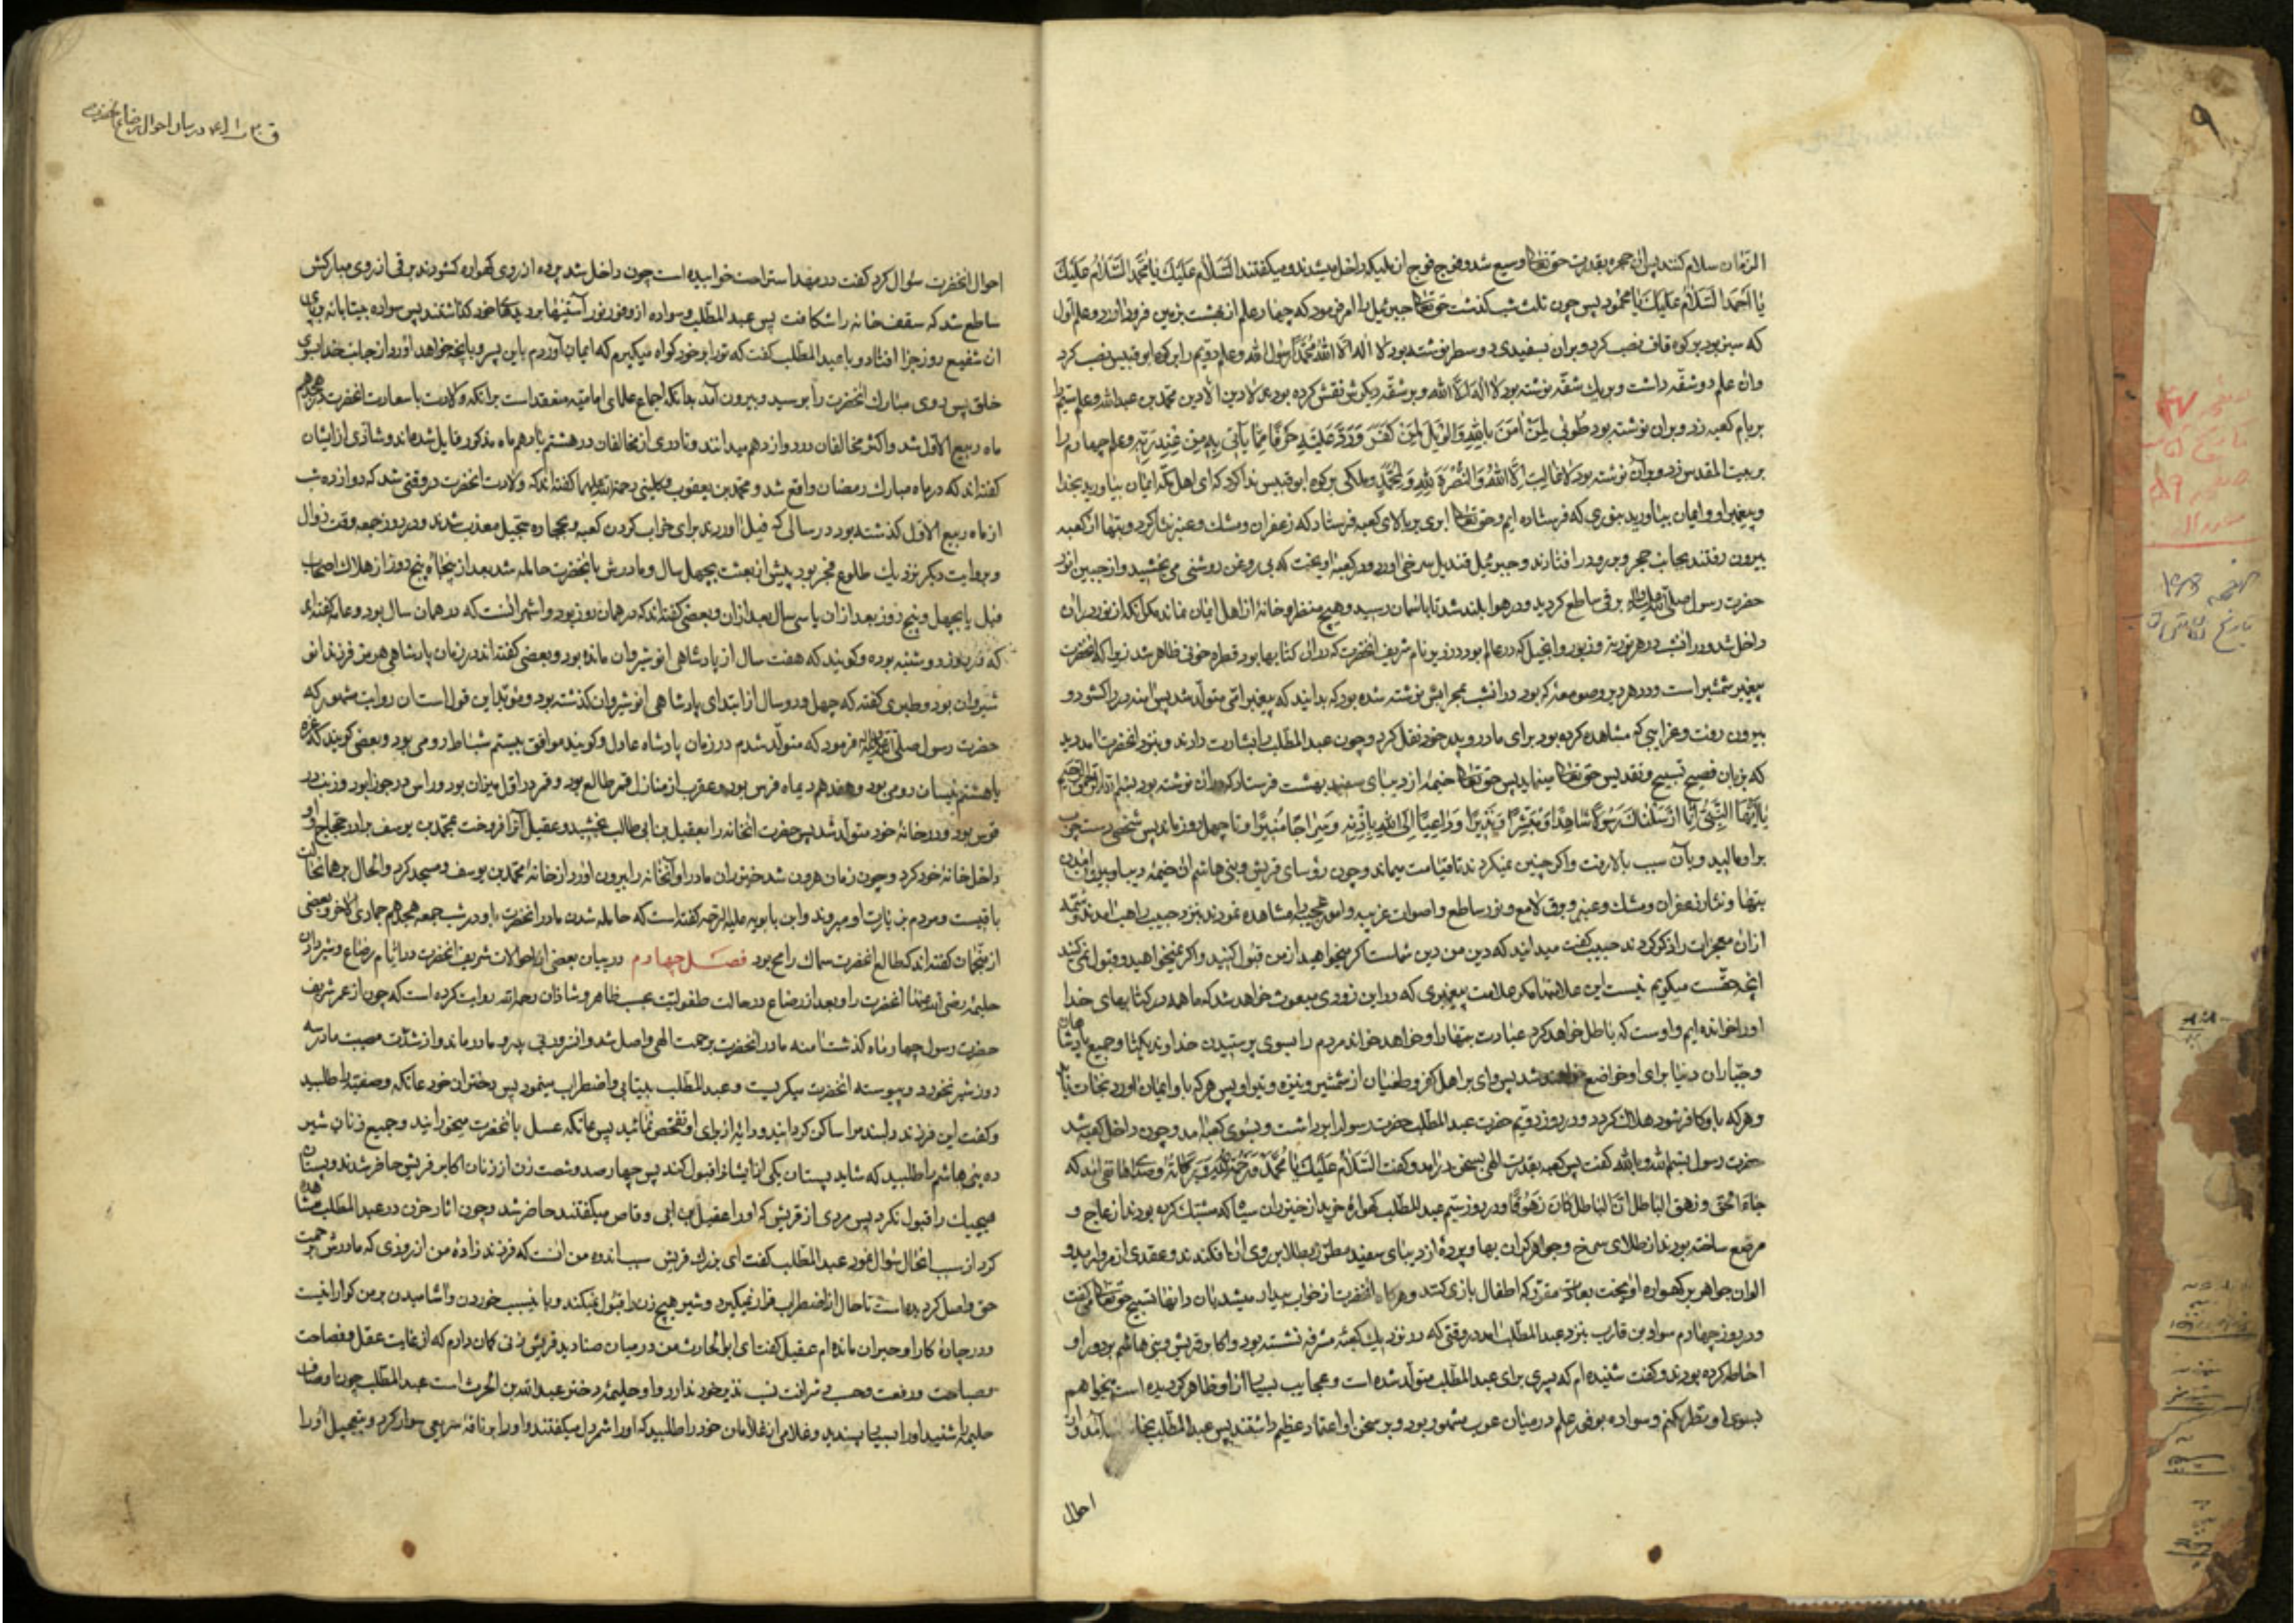 الزمان سلام کنند پس ان حجره بقدرت حق تعالی وسیع شد و فوج فوج ان ملیکه داخل میشدند و میکفتند السَّلامُ عَلَیْكَ یا مُحَمَّد السَّلامُ عَلَیْكَ
یا اَحْمَد السَّلامُ عَلَیْكَ یا محمود پس چون ثلث شب کذشت حق تعالی جبرئیل را امر فرمود که چهار علم از بهشت بزمین فرود اورد و علم اول
که سبز بود بر کوه قاف نصب کرد و بران بسفیدی دو سطر نوشته بود لا اله الا الله محمد رسول الله و علم دویم را بر کوه ابو قبیس نصب کرد
وان علم دو شقه داشت و بر یك شقه نوشته بود لا اله الا الله و بر شقه دیکرش نقش کرده بود که لا دین الا دین محمد بن عبدالله و علم سیم را
بر بام کعبه زد و بران نوشته بود طُوبی لِمَنْ امَنَ بِاللهِ وَالْوَیْلُ لِمَنْ کَفَرَ وَرَدَّ عَلَیْهِ حَرْفًا مِمّا یَأتی بِهِ مِنْ عِنْدِ رَبِّهِ و علم چهارم را
بر بیت المقدس زد و بران نوشته بود لا غالِبَ اِلَّا اللهُ وَالنُّصْرَةُ لِلّهِ وَلِمُحَمَّدٍ و ملکی بر کوه ابو قبیس ندا کرد که ای اهل مکه ایمان بیاورید بخدا
و پیغمبر او و ایمان بیاورید بنوری که فرستاده ایم و حق تعالی ابری بر بالای کعبه فرستاد که زعفران و مشك و عنبر نثار کرد و بتها از کعبه
بیرون رفتند بجانب حجر و برو در افتادند و جبرئیل قندیل سرخی اورد و در کعبه اویخت که بی روغن روشنی می بخشید و از جبین انور
حضرت رسول صلی الله علیه واله برقی ساطع کردید و در هوا بلند شد تا باسمان رسید و هیچ منظر و خانۀ از اهل ایمان نماند مکر انکه از نور دران
داخل شد و در انشب در هر توریة و زبور و انجیل که در عالم بود در زیر نام شریف انحضرت که دران کتابها بود قطره خونی ظاهر شد زیرا که انحضرت
پیغمبر شمشیر است و در هر دیر و صومعه که بود در انشب بر محرابش نوشته شده بود که بدانید که پیغمبر امی متولد شد پس امنه در را کشود و
بیرون رفت و غرایبی که مشاهده کرده بود برای مادر و پدر خود نقل کرد و چون عبد المطلب را بشارت دادند و بنزد انحضرت امد دید
که بزبان فصیح تسبیح و تقدیس حق تعالی مینماید پس حق تعالی خیمۀ از دیبای سفید بهشت فرستاد که دران نوشته بود بسم الله الرحمن الرحیم
یا اَیُّهَا النَّبِیُّ اِنّا اَرْسَلْناكَ شاهِدًا وَمُبَشِّرًا وَنَذیرًا وَداعِیًا اِلَی اللهِ بِاِذْنِهِ وَسِراجًا مُنیرًا و تا چهل روز ماند پس شخصی دست
بر او مالید و بان سبب بالا رفت و اکر چنین نمیکردند تا قیامت میماند و چون رؤسای قریش و بنی هاشم ان خیمۀ دیبا و بیرون امدن
بتها و نثار زعفران و مشك و عنبر و برق لامع و نور ساطع و اصوات غریب و امور عجیب را مشاهده نمودند بنزد حبیب راهب امدند و شمۀ
ازان معجزات را ذکر کردند حبیب کفت میدانید که دین من دین شما نیست اکر میخواهید از من قبول کنید و اکر نمیخواهید قبول نمی کنید
انچه حقست میکویم نیست این علامتها مکر علامت پیغمبری که در این زودی مبعوث خواهد شد که ما همه در کتابهای خدا
او را خوانده ایم و اوست که باطل خواهد کرد عبادت بتها را و خواهد خواند مردم را بسوی پرستیدن خداوند یکتا و جمیع پادشاهان
و جباران دنیا برای او خاضع خواهند شد پس وای بر اهل کفر و طغیان از شمشیر و نیزه و تیر او پس هر که باو ایمان اورد نجات یابد
و هر که باو کافر شود هلاك کردد و در روز دویم حضرت عبد المطلب حضرت رسول را برداشت و بسوی کعبه امد و چون داخل کعبه شد
حضرت رسول بسم الله و بالله کفت پس کعبه بقدرت الهی بسخن درامد و کفت السَّلامُ عَلَیْكَ یا مُحَمَّدُ وَرَحْمَةُ اللهِ وَبَرَکاتُهُ و صدای هاتفی امد که
جاءَ الحق و زهق الباطل انّ الباطل کانَ زَهُوقًا و در روز سیم عبد المطلب کهوارۀ خرید از خیزران سیاه که مشبك کرده بودند از عاج و
مرصع ساخته بودند از طلای سرخ و جواهر کران بها و پردۀ از دیبای سفید مطرز بطلا بر روی ان افکندند و عقدی از مروارید و
الوان جواهر بر کهواره اویخت بعادت مقرر که اطفال بازی کنند و هرکاه انحضرت از خواب بیدار میشد بان دانها تسبیح حق تعالی میکفت
و در روز چهارم سواد بن قارب بنزد عبد المطلب امد در وقتی که در نزدیك کعبۀ مشرفه نشسته بود و اکابر قریش و بنی هاشم بر دور او
احاطه کرده بودند و کفت شنیده ام که پسری برای عبد المطلب متولد شده است و عجایب بسیار از او ظاهر کردیده است میخواهم
بسوی او نظر کنم و سواده بوفور علم در میان عرب مشهور بود و بر سخن او اعتماد عظیم داشتند پس عبد المطلب
احوال
ق باب ۴ در بیان احوال رضاع انحضرت
احوال انحضرت سؤال کرد کفت در مهد استراحت خوابیده است چون داخل شد پرده از روی کهواره کشودند برقی از روی مبارکش
ساطع شد که سقف خانه را شکافت پس عبد المطلب و سواده از وفور نور آستینها بر دیدهای خود کذاشتند پس سواده بیتابانه بر پای
ان شفیع روز جزا افتاد و با عبد المطلب کفت که تو را بر خود کواه میکیرم که ایمان آوردم باین پسر و بانچه خواهد اورد از جانب خدا بسوی
خلق پس روی مبارك انحضرت را بوسید و بیرون آمد بدانکه اجماع علمای امامیه منعقد است بر انکه ولادت با سعادت انحضرت در هفدهم
ماه ربیع الاول شد و اکثر مخالفان در دوازدهم میدانند و نادری از مخالفان در هشتم یا دهم ماه مذکور قایل شده اند و شاذی از ایشان
کفته اند که در ماه مبارك رمضان واقع شد و محمد بن یعقوب کلینی رحمة الله علیه کفته اند که ولادت انحضرت در وقتی شد که دوازده شب
از ماه ربیع الاول کذشته بود در سالی که فیل اوردند برای خراب کردن کعبه و بحجاره سجیل معذب شدند و در روز جمعه وقت زوال
و بروایت دیکر نزدیك طلوع فجر بود پیش از بعثت بچهل سال و مادرش بانحضرت حامله شد بعد از پنجاه و پنج روز از هلاك اصحاب
فیل یا بچهل و پنج روز بعد ازان یا سی سال بعد ازان و بعضی کفته اند که در همان روز بود و اشهر انست که در همان سال بود و عامه کفته اند
که در روز دوشنبه بوده و کویند که هفت سال از پادشاهی انوشیروان مانده بود و بعضی کفته اند در زمان پادشاهی هرمز فرزند انو
شیروان بود و طبری کفته که چهل و دو سال از ابتدای پادشاهی انوشیروان کذشته بود و مؤید این قول است ان روایت مشهور که
حضرت رسول صلی الله علیه واله فرمود که متولد شدم در زمان پادشاه عادل و کویند موافق بیستم شباط رومی بود و بعضی کویند که
یا هشتم نیسان رومی بود و هفدهم دیماه فرس بود و عقرب از منازل قمر طالع بود و قمر در اول میزان بود و راس در جوزا بود و زنب در
قوس بود و در خانۀ خود متولد شد پس حضرت انخانه را بعقیل بن ابی طالب بخشید و عقیل آنرا فروخت بمحمد بن یوسف برادر حجاج و او
داخل خانۀ خود کرد و چون زمان هرون شد خیزران مادر او آنخانه را بیرون اورد از خانۀ محمد بن یوسف و مسجد کرد و الحال بر همان حال
باقیست و مردم بزیارت او میروند و ابن بابویه علیه الرحمه کفته است که حامله شدن مادر انحضرت باو در شب جمعه هجدهم جمادی الاخر و بعضی
از منجمان کفته اند که طالع انحضرت سماك رامح بود فصل چهارم در بیان بعضی از احوالات شریف انحضرت در ایام رضاع و شیر دادن
حلیمه رضی الله عنها انحضرت را و بعد از رضاع در حالت طفولیت طاهر و شاذان رحمه الله روایت کرده است که چون از عمر شریف
حضرت رسول چهار ماه کذشت امنه مادر انحضرت برحمت الهی واصل شد و انسرور بی پدر و مادر ماند و از شدت مصیبت مادر سه
روز شیر نخورد و پیوسته انحضرت میکریست و عبد المطلب بیتابی و اضطراب مینمود پس دختران خود عاتکه و صفیه را طلبید
و کفت این فرزند دلبند مرا ساکن کردانید و دایۀ از برای او تفحص نمائید پس عاتکه عسل بانحضرت میخورانید و جمیع زنان شیر
ده بنی هاشم را طلبید که شاید پستان یکی از ایشانرا قبول کند پس چهار صد و شصت زن از زنان اکابر قریش حاضر شدند و پستان
هیچیك را قبول نکرد پس مردی از قریش که او را عقیل بن ابی وقاص میکفتند حاضر شد و چون اثار حزن در عبد المطلب مشاهده
کرد از سبب انحال سؤال نمود عبد المطلب کفت ای بزرك قریش سبب اندوه من انست که فرزند زادۀ من از روزی که مادرش برحمت
حق واصل کردیده است تا حال از اضطراب قرار نمیکیرد و شیر هیچ زن را قبول نمیکند و باینسبب خوردن و اشامیدن بر من کوارا نیست
و در چارۀ کار او حیران مانده ام عقیل کفت ای ابو الحارث من در میان صنادید قریش زنی کمان دارم که از غایت عقل و فصاحت
و صباحت و رفعت و حسب و شرافت نسب نذیر خود ندارد و او حلیمۀ دختر عبدالله بن الحرث است عبد المطلب چون اوصاف
حلیمه را شنید او را بسیار پسندید و غلامی از غلامان خود را طلبید که او را شمردل میکفتند و او را بر ناقۀ سریعی سوار کرد و بتعجیل او را